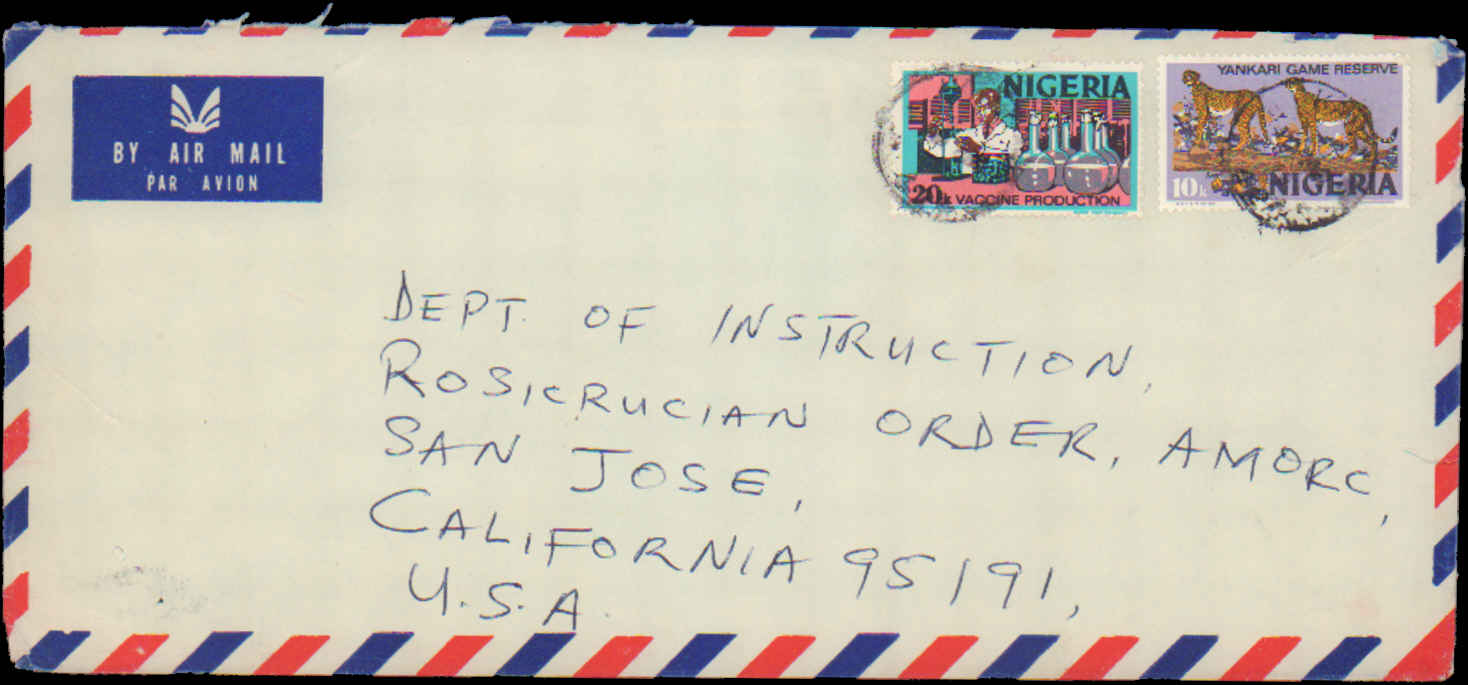 BY AIR MAIL
PAR AVION
NIGERIA
20k VACCINE PRODUCTION
YANKARI GAME RESERVE
10k
NIGERIA
DEPT. OF INSTRUCTION,
ROSICRUCIAN ORDER, AMORC,
SAN JOSE,
CALIFORNIA 95191,
U.S.A.